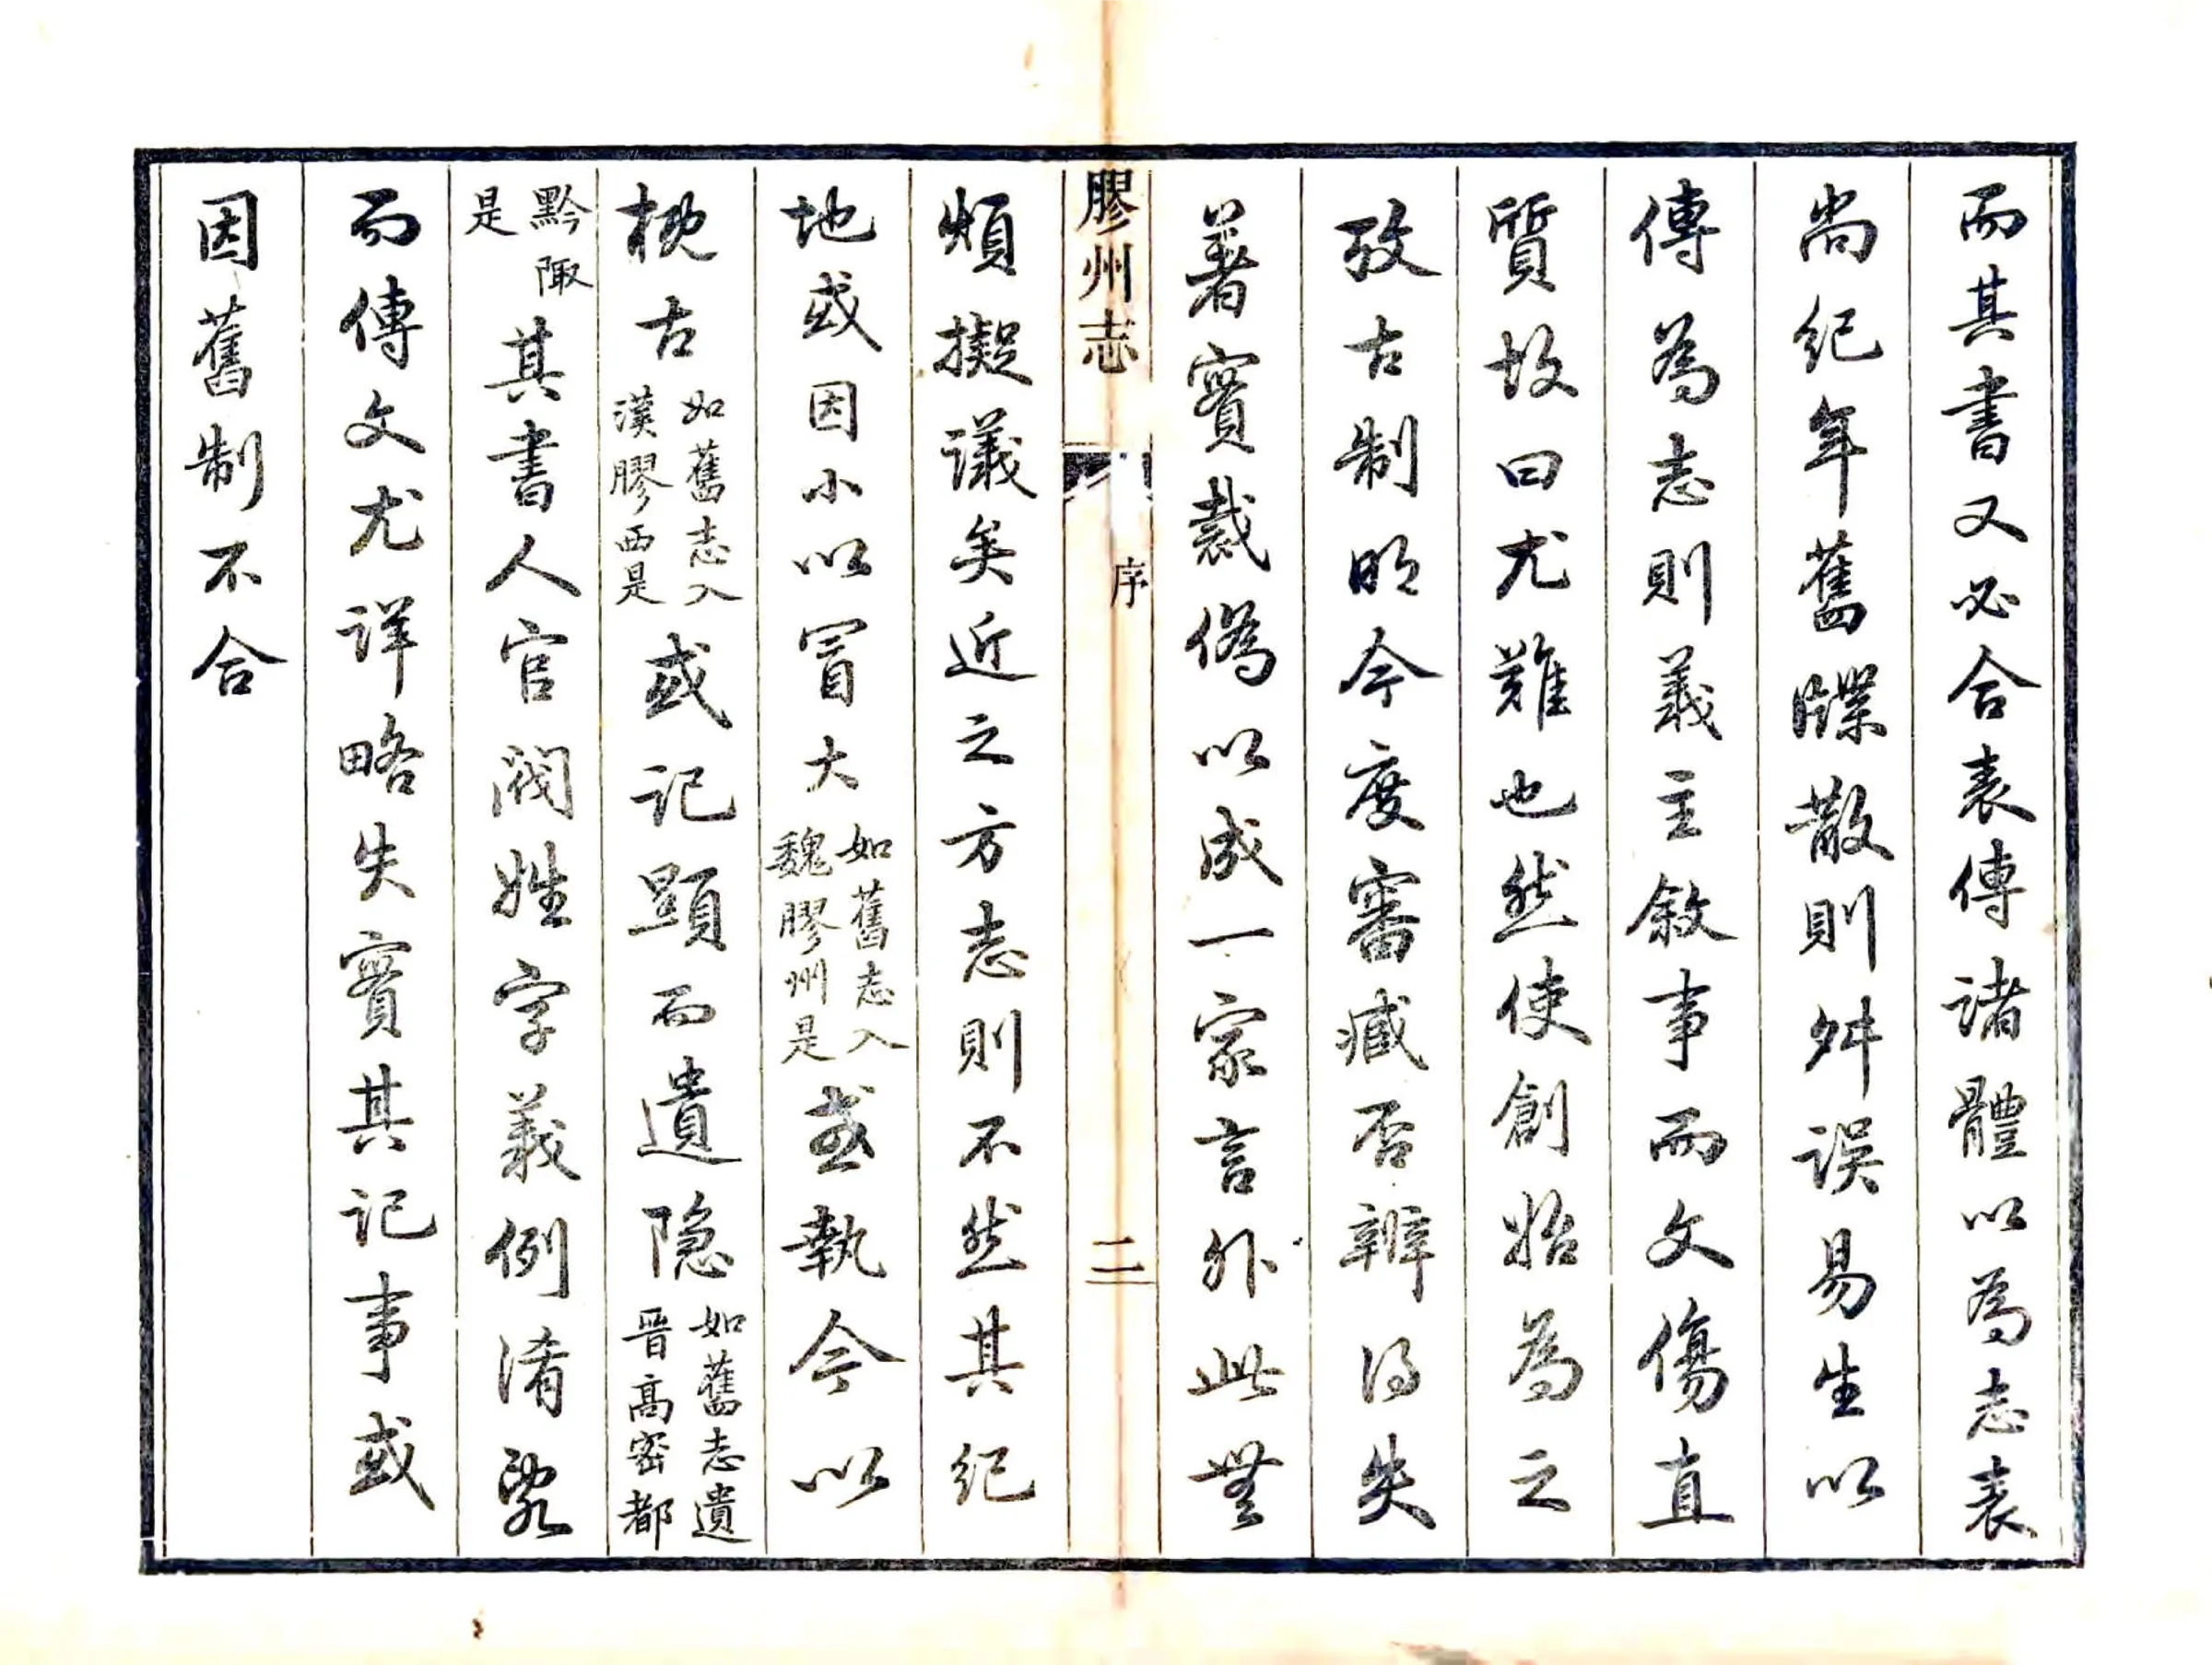 而其書又必合表傳諸體以為志表
尚紀年舊牒散則舛誤易生以
傳為志則義主敘事而文傷直
質故曰尤難也然使創始為之
攷古制明今度審臧否辨得失
著實裁偽以成一家言外此無
膠州志
序
二
煩擬議矣近之方志則不然其紀
地或因小以冒大如舊志入魏膠州是或執今以
概古如舊志入漢膠西是或記顯而遺隱如舊志遺晉高密都
黔陬是其書人官閥姓字義例淆亂
而傳文尤詳略失實其記事或
因舊制不合